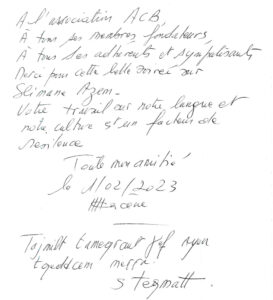 A l'association ACB,
À tous ses membres fondateurs
À tous ses adhérents et sympatisants
Merci pour cette belle soirée sur
Slimane Azem.
Votre travail sur notre langue et
notre culture est un facteur de
résilience
Toute mon amitié
le 11/02/2023
Hacene
Tajmilt tameqrant ɣef ayen
txeddmem merra.
S tezmert.